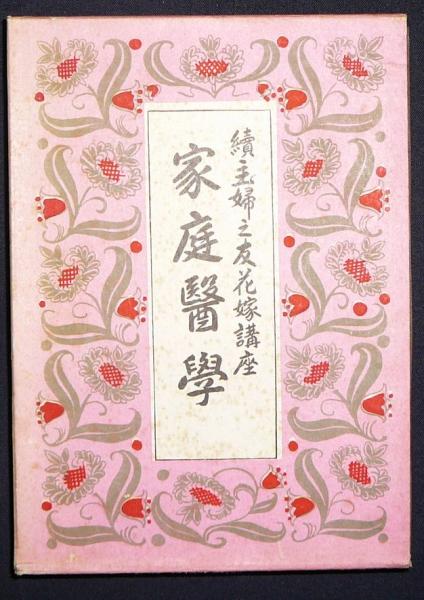 續主婦之友花嫁講座
家庭醫學